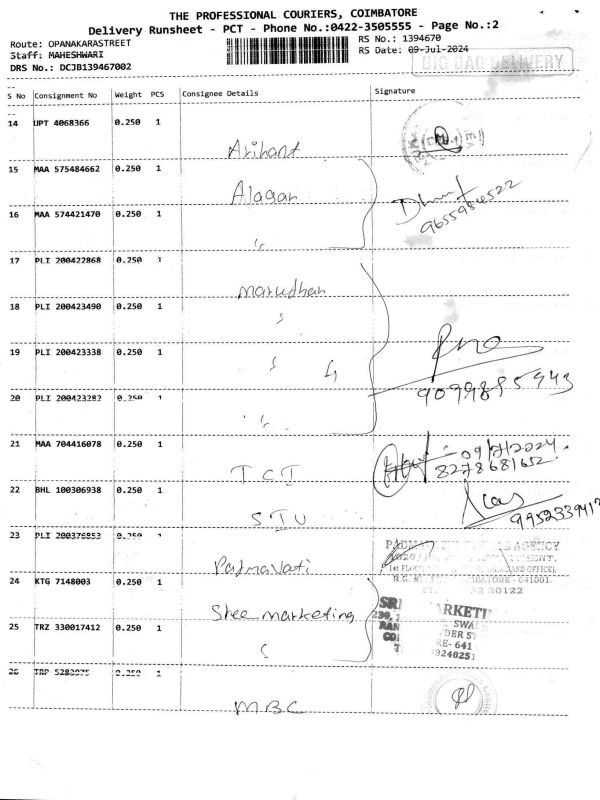 THE PROFESSIONAL COURIERS, COIMBATORE
Delivery Runsheet - PCT - Phone No.:0422-3505555 - Page No.:2
Route: OPANAKARASTREET
RS No.: 1394670
Staff: MAHESHWARI
RS Date: 09-Jul-2024
DRS No.: DCJB139467002
BIG BAG DELIVERY
S No Consignment No Weight PCS Consignee Details Signature
14 UPT 4068366 0.250 1
Arihant
15 MAA 575484662 0.250 1
Alagar
16 MAA 574421470 0.250 1
"
9655984522
17 PLI 200422868 0.250 1
Marudhar
18 PLI 200423490 0.250 1
"
19 PLI 200423338 0.250 1
" 4
9099895943
20 PLI 200423282 0.250 1
"
21 MAA 704416078 0.250 1
T C I
09/7/2024
8278681652
22 BHL 100306938 0.250 1
S I U
23 PLI 200376853 0.250 1
Padmavati
AGENCY
1st FLOOR
641001
24 KTG 7148003 0.250 1
Shee marketing
25 TRZ 330017412 0.250 1
"
MARKETI
SWA
DER ST
RE-641
9248251
26 TRP 5283975 0.250 1
MBC